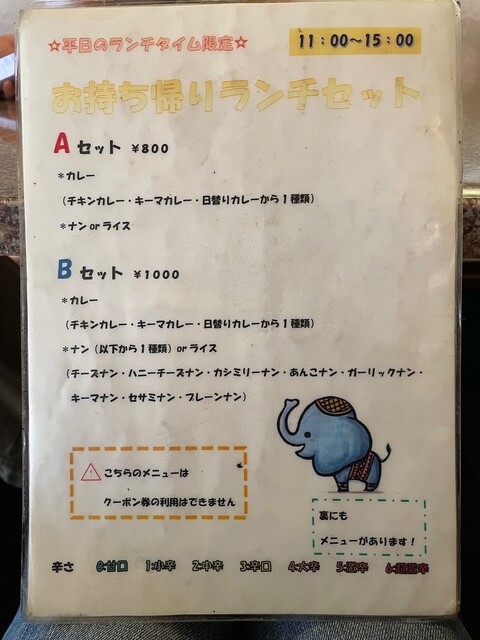 ☆平日のランチタイム限定☆
11:00～15:00
お持ち帰りランチセット
A セット ￥800
＊カレー
（チキンカレー・キーマカレー・日替りカレーから1種類）
＊ナン or ライス
B セット ￥1000
＊カレー
（チキンカレー・キーマカレー・日替りカレーから1種類）
＊ナン（以下から1種類）or ライス
（チーズナン・ハニーチーズナン・カシミリーナン・あんこナン・ガーリックナン・
キーマナン・セサミナン・プレーンナン）
こちらのメニューは
クーポン券の利用はできません
裏にも
メニューがあります！
辛さ 0:甘口 1:小辛 2:中辛 3:辛口 4:大辛 5:激辛 6:超激辛